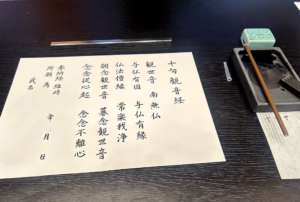 十句観音経
観世音 南無仏
与仏有因 与仏有縁
仏法僧縁 常楽我浄
朝念観世音 暮念観世音
念念従心起 念念不離心
奉納経 維時
所願 為
年 月 日
氏名